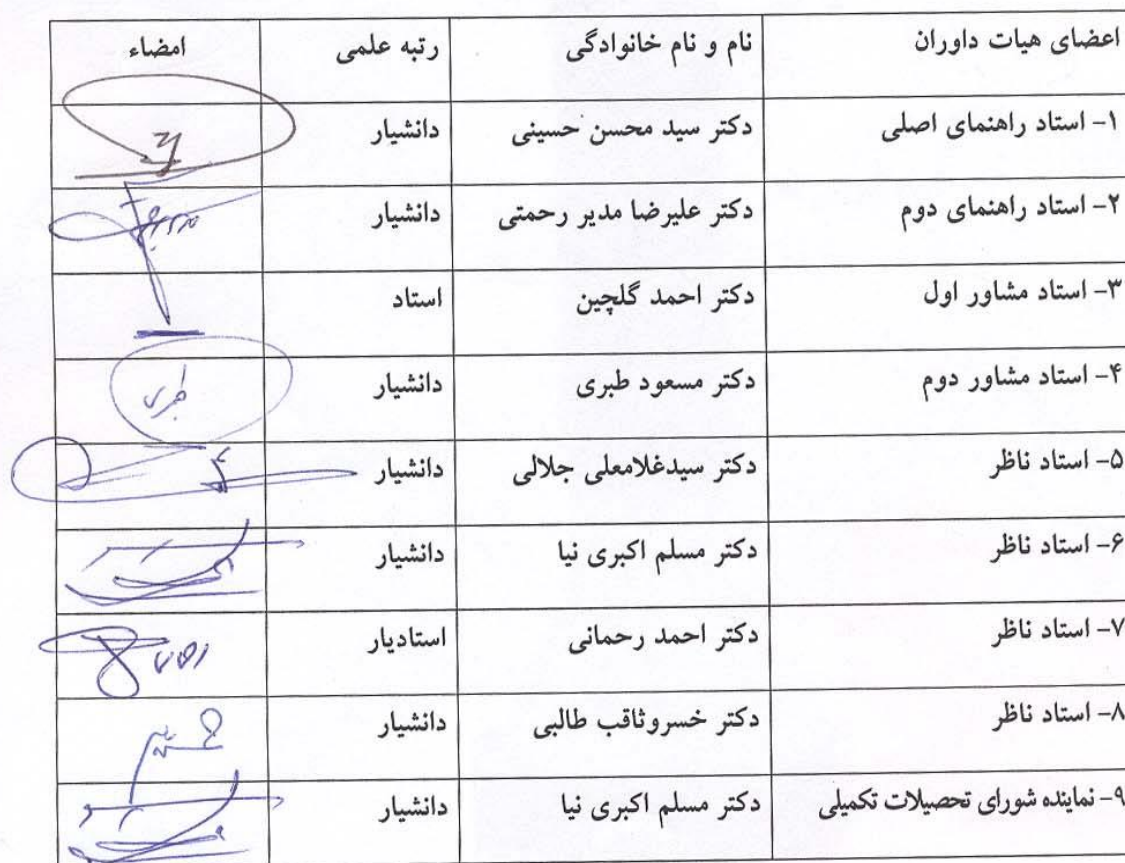 اعضای هیات داوران نام و نام خانوادگی رتبه علمی امضاء
۱- استاد راهنمای اصلی دکتر سید محسن حسینی دانشیار
۲- استاد راهنمای دوم دکتر علیرضا مدیر رحمتی دانشیار
۳- استاد مشاور اول دکتر احمد گلچین استاد
۴- استاد مشاور دوم دکتر مسعود طبری دانشیار
۵- استاد ناظر دکتر سیدغلامعلی جلالی دانشیار
۶- استاد ناظر دکتر مسلم اکبری نیا دانشیار
۷- استاد ناظر دکتر احمد رحمانی استادیار
۸- استاد ناظر دکتر خسروثاقب طالبی دانشیار
۹- نماینده شورای تحصیلات تکمیلی دکتر مسلم اکبری نیا دانشیار